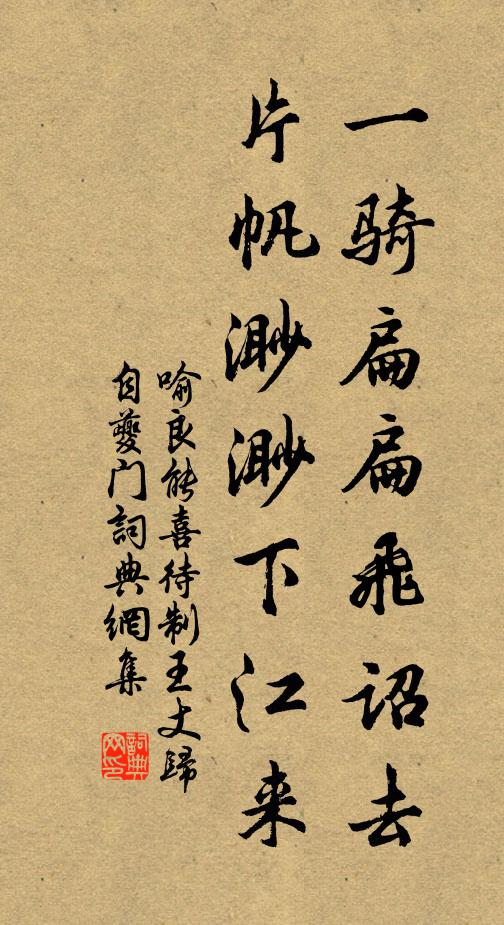 一骑扁扁飛诏去
片帆渺渺下江来
喻良能喜待制王丈歸
自夔门詞典網集
詞典網印